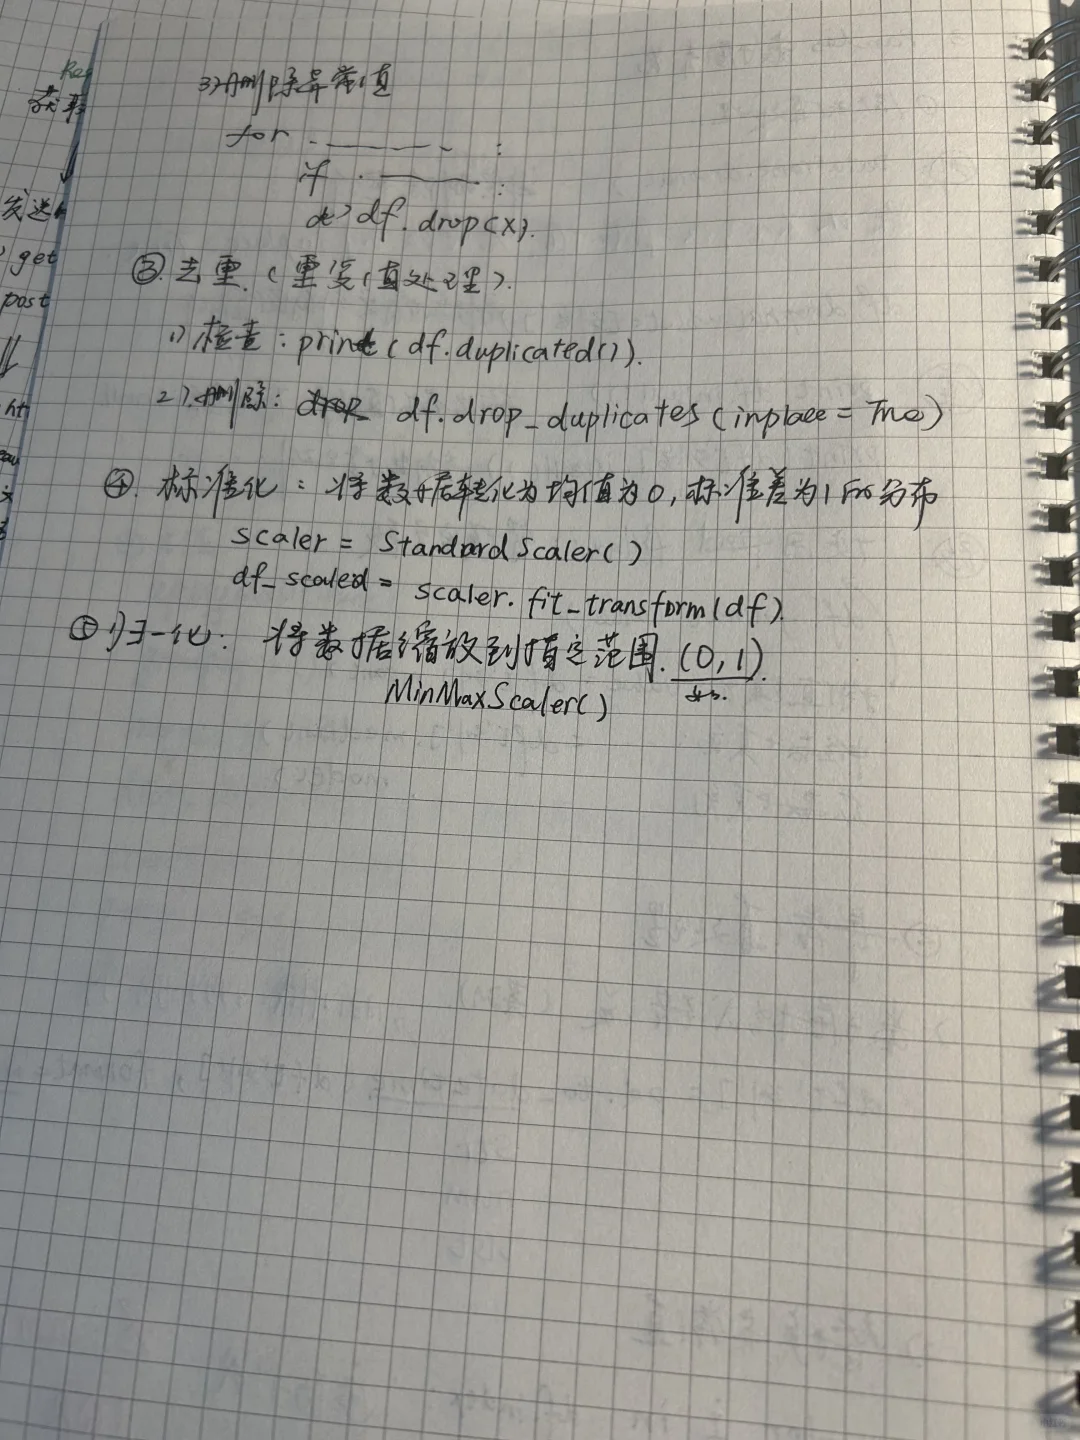 3)删除异常值
for ———— :
if ———— :
df.drop(x).
③.去重.(重复值处理).
1)检查:print(df.duplicated()).
2).删除: drop df.drop_duplicates(inplace=True)
④.标准化:将数据转化为均值为0,标准差为1的分布
scaler = StandardScaler()
df_scaled = scaler.fit_transform(df)
⑤归一化: 将数据缩放到指定范围.(0,1).
MinMaxScaler()
获取
发送
get
post